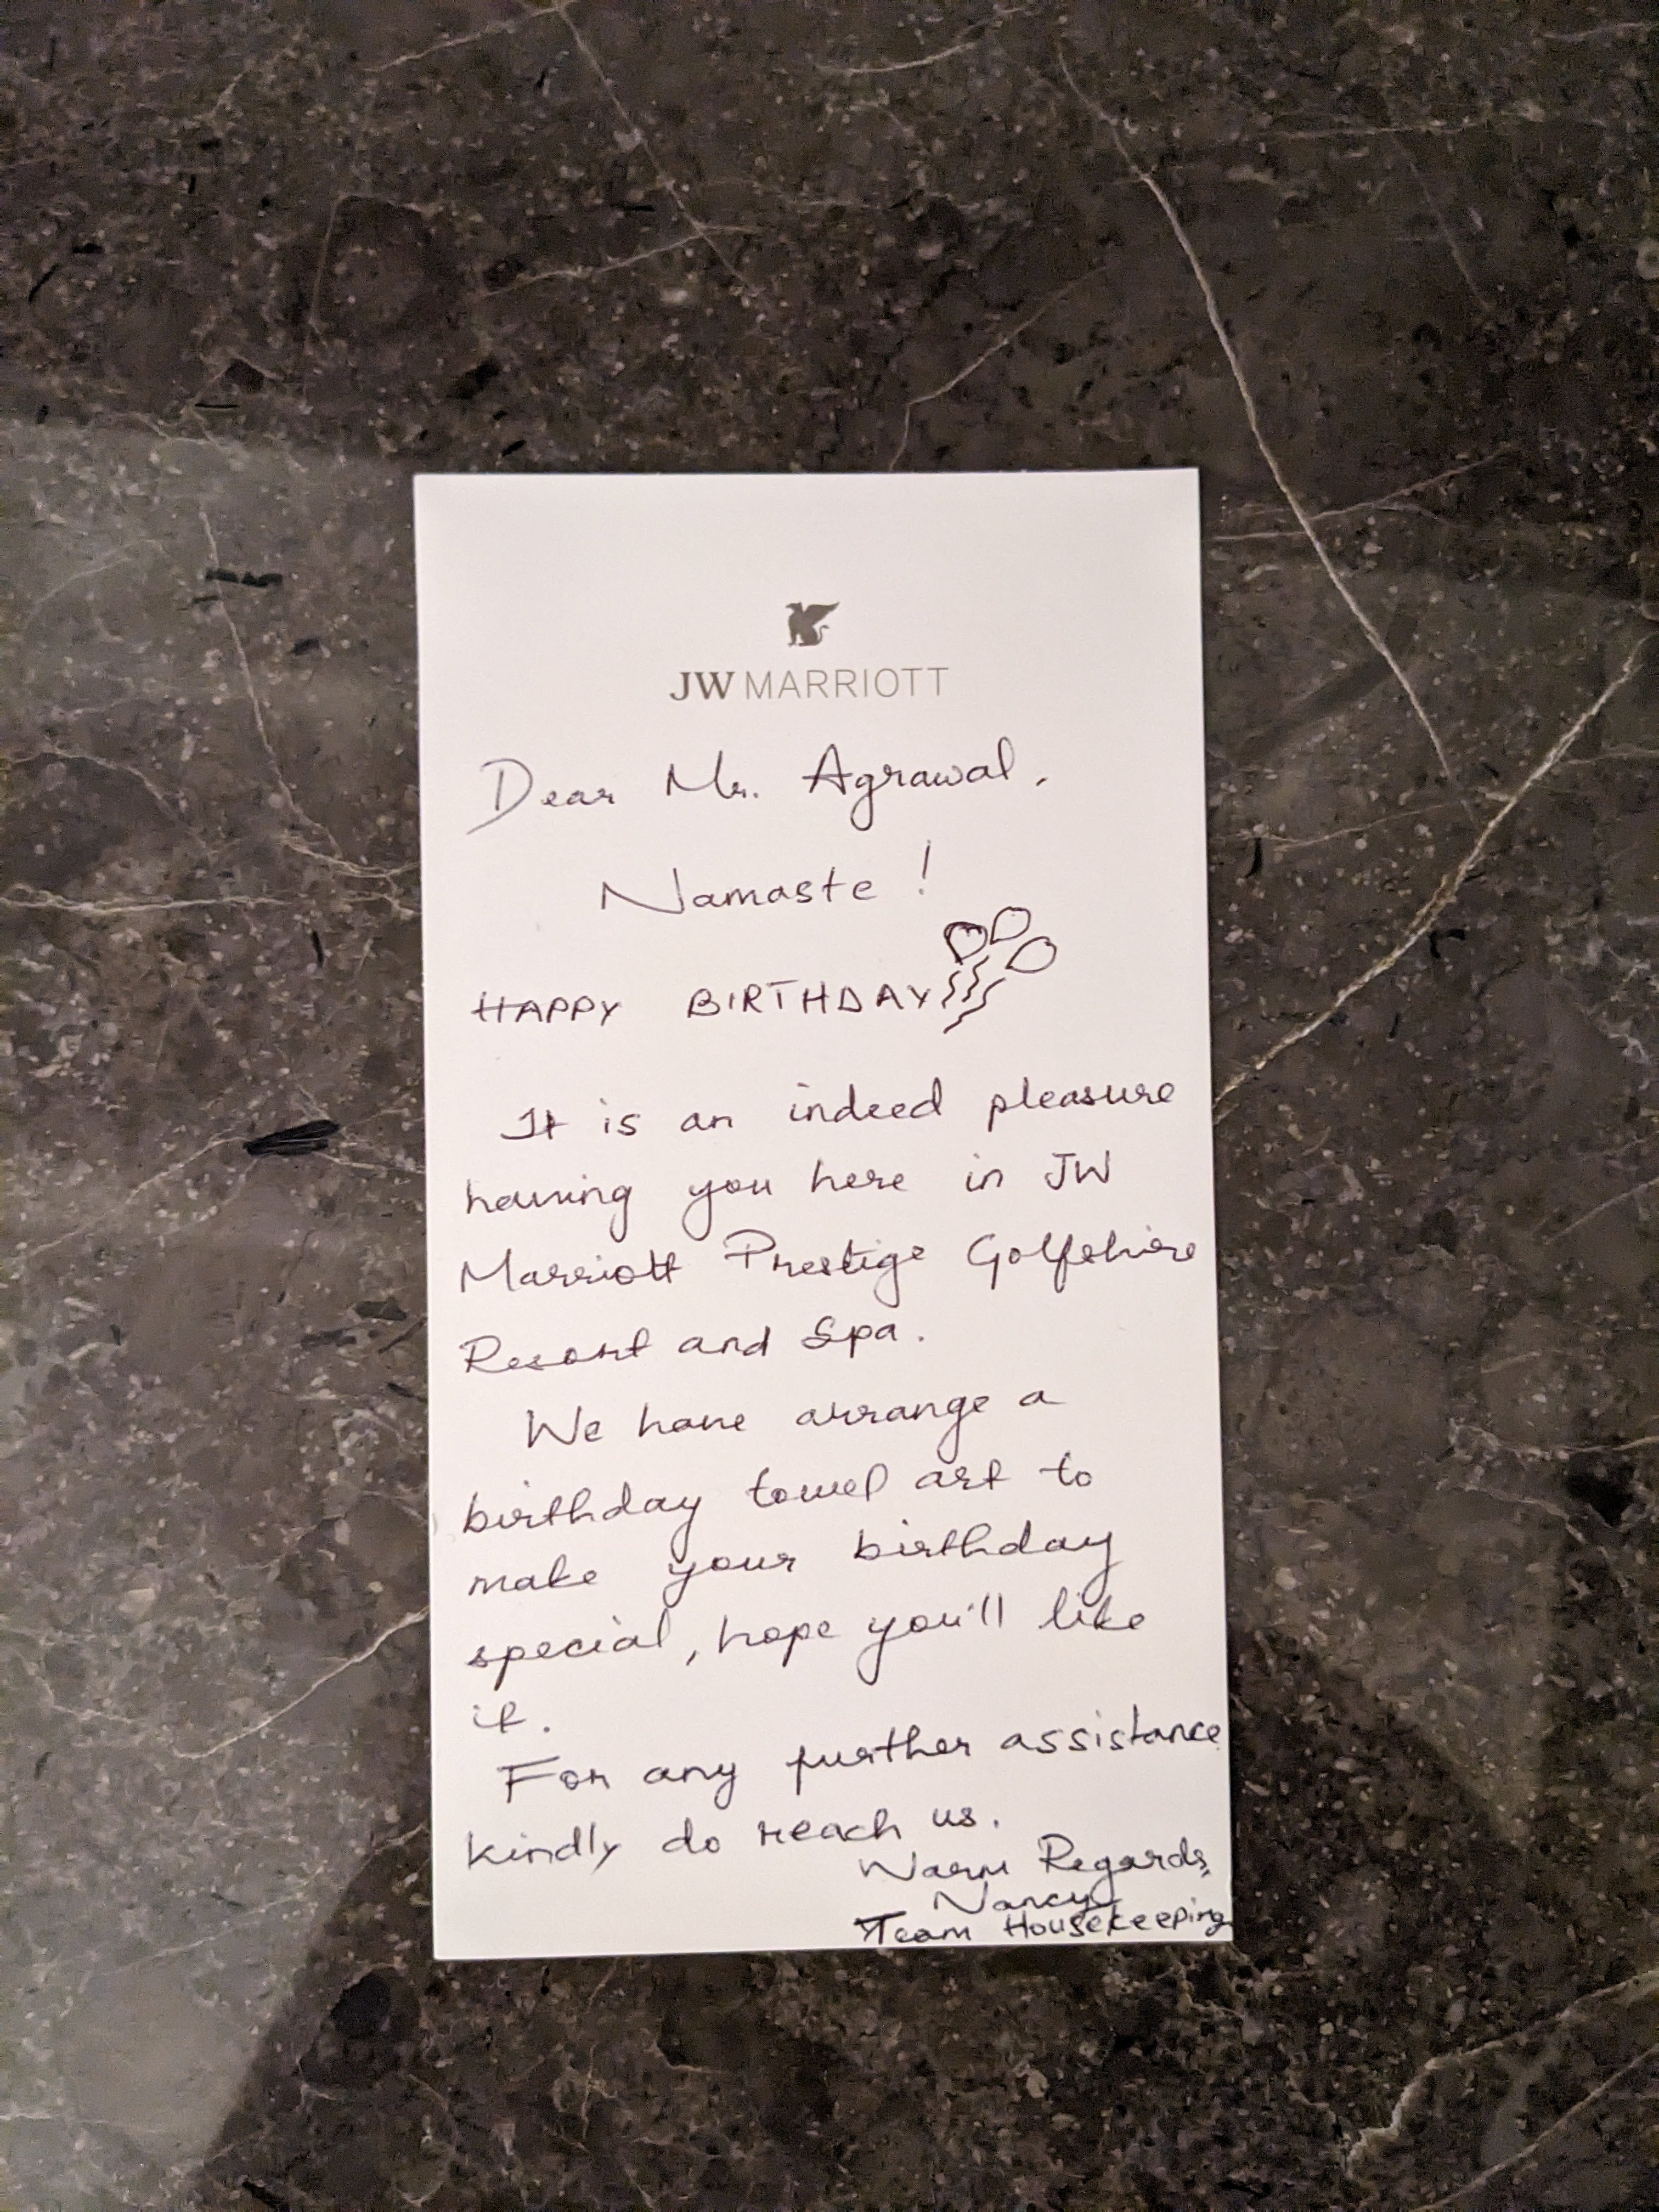 JW MARRIOTT
Dear Mr. Agrawal,
Namaste !
HAPPY BIRTHDAY
It is an indeed pleasure
having you here in JW
Marriott Prestige Golfshire
Resort and Spa.
We have arrange a
birthday towel art to
make your birthday
special, hope you'll like
it.
For any further assistance
kindly do reach us.
Warm Regards,
Nancy
Team Housekeeping